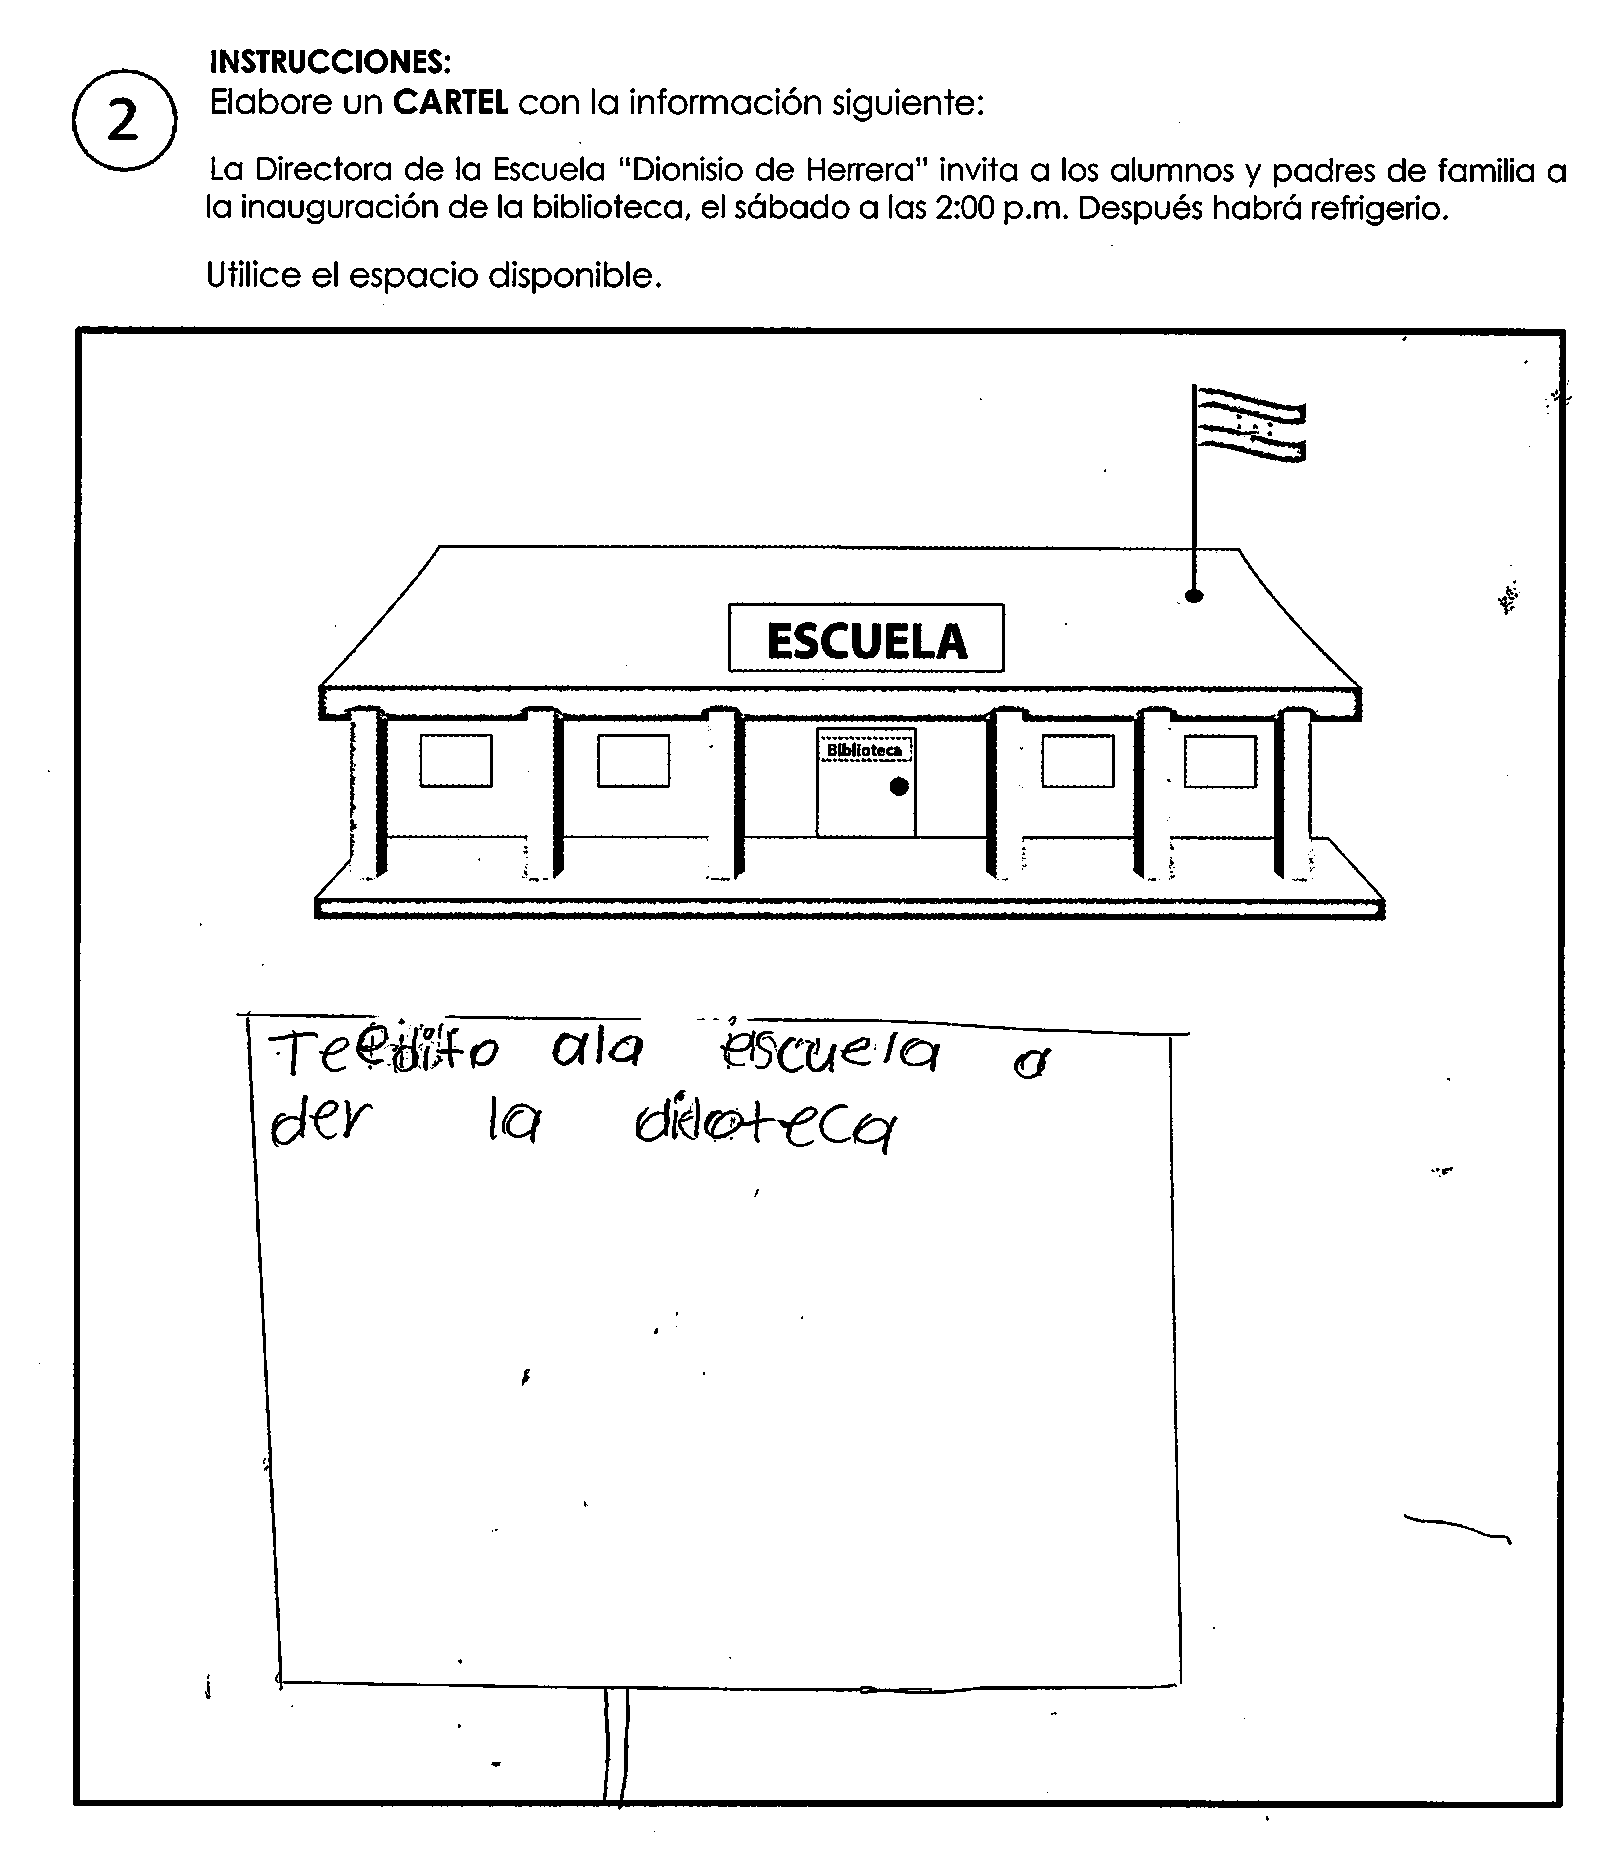 INSTRUCCIONES:
2
Elabore un CARTEL con la información siguiente:
La Directora de la Escuela "Dionisio de Herrera" invita a los alumnos y padres de familia a
la inauguración de la biblioteca, el sábado a las 2:00 p.m. Después habrá refrigerio.
Utilice el espacio disponible.
ESCUELA
Biblioteca
ala escuela a
der la didoteca